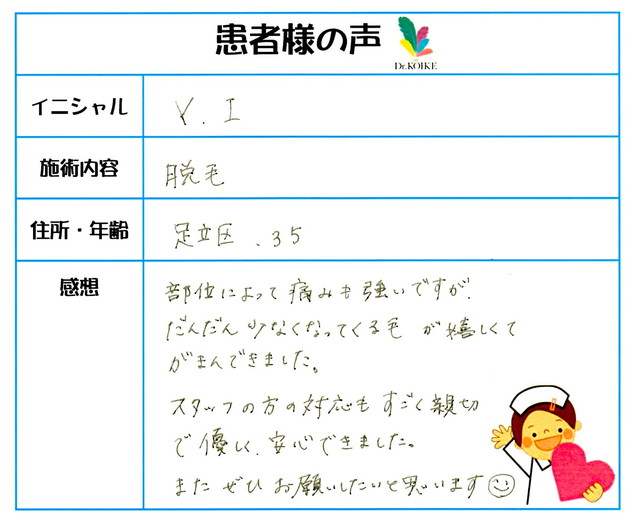 患者様の声
Dr.KOIKE
イニシャル
Y. I
施術内容
脱毛
住所・年齢
足立区 .35
感想
部位によって痛みも強いですが、
だんだん少なくなってくる毛 が嬉しくて
がまんできました。
スタッフの方の対応も すごく親切
で優しく、安心できました。
また ぜひ お願いしたいと思います